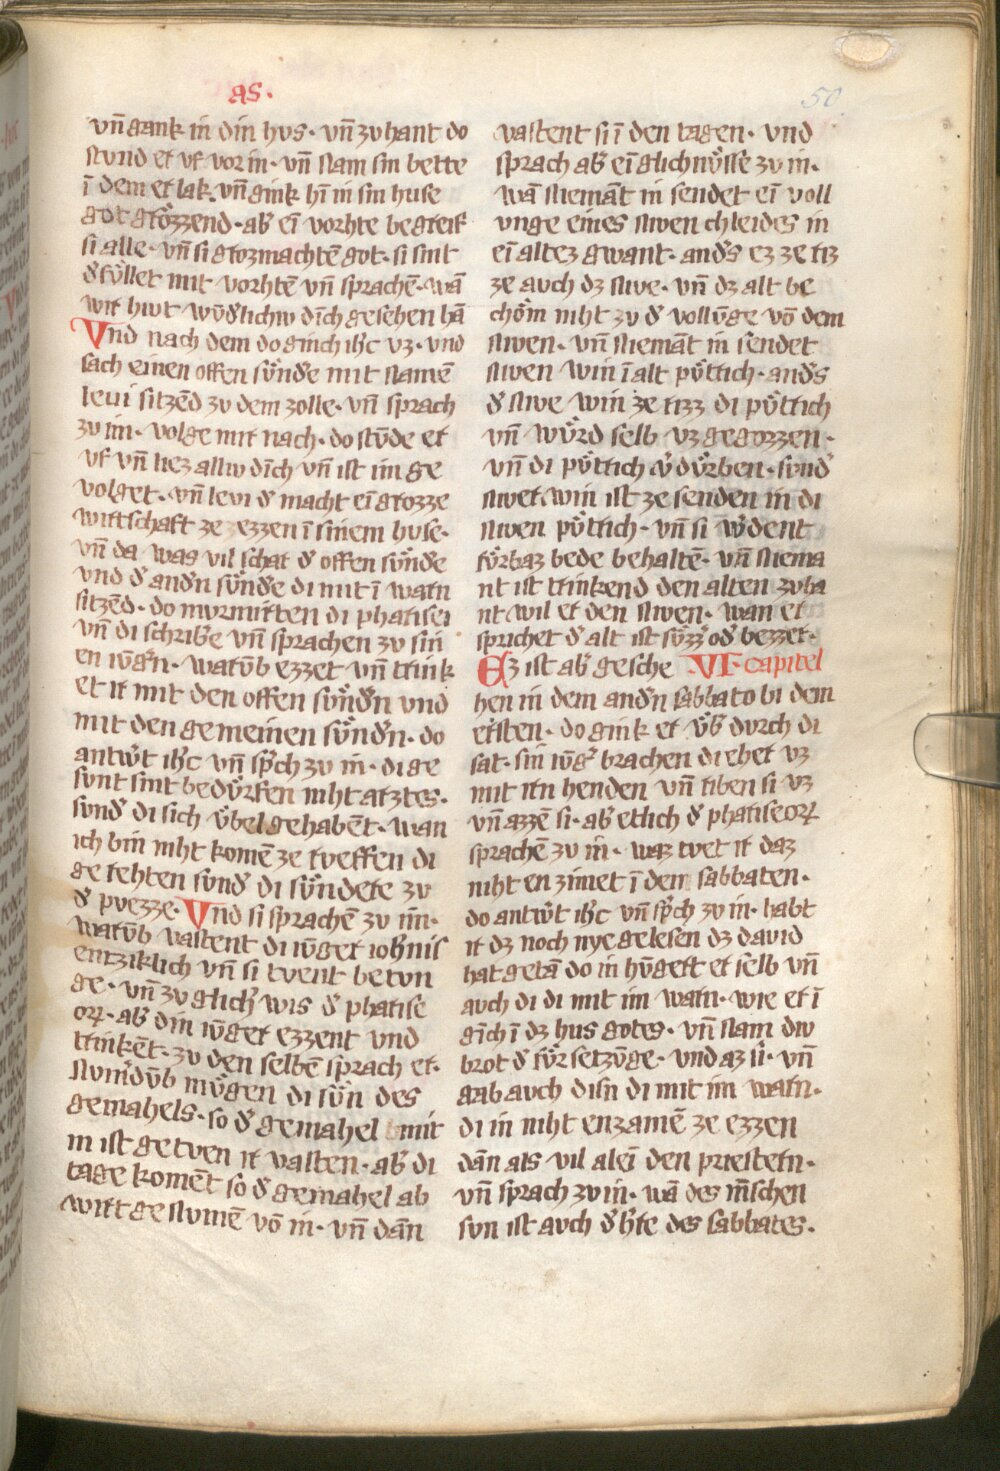 as.
50
vn̄ gank in din hvs· vn̄ zv hant do
stvnd er vf vor in· vn̄ nam sin bette
ī dem er lak. vn̄ gink hī in sin huse
got grözzend· ab͛ eī vorhte begreif
si alle· vn̄ si grozmachtē got· si sint
d͛fvͤllet mit vorhtē vn̄ sprachē· wā
wir hivt wv̄d͛lichiv dīch gesehen hā
Vnd nach dem do ginch ih̄c vz· vnd
sach einen offen svͤnd͛e mit namē
levi sitzēd zv dem zolle· vn̄ sprach
zv im· volge mir nach· do stv̄de er
vf vn̄ liez alliv dīch vn̄ ist im ge
volget· vn̄ levi d͛ macht eī grozze
wirtschaft ze ezzen ī sinem huse·
vn̄ da was vil schar d͛ offen svͤnde
vnd d͛ and͛n svͤnde di mit ī warn
sitzēd· do mvrmirten di pharisei
vn̄ di schrib͛e vn̄ sprachen zv sin
en ivg͛n· warv̄b ezzet vn̄ trink
et ir mit den offen svͤnd͛n vnd
mit den gemeinen svͤnd͛n· do
antw͛t ih̄c vn̄ sp͛ch zv in· di ge
svnt sint bedvͤrfen niht arztes·
svnd͛ di sich vͤbel gehabēt· wan
ich bin niht komē ze rveffen di
gerehten svnd͛ di svͤndere zv
d͛ pvezze· Vnd si sprachē zv im·
warv̄b vastent di ivger ioh̄nis
emziklich vn̄ si tvent betvn
ge· vn̄ zv glich͛ wis d͛ pharise
oꝝ· ab͛ din ivger ezzent vnd
trinkēt· zv den selbē sprach er·
nvm͛dv̄b mvͤgen di svͤn des
gemahels· so d͛ gemahel mit
in ist getven ir vasten· ab͛ di
tage komēt so d͛ gemahel ab
wirt genvmē vō in· vn̄ dān
vastent si ī den tagen· vnd
sprach ab͛ eī glichnvͤsse zv in·
wā niemāt in sendet eī voll
vnge eines niwen chleides in
eī altez gwant· and͛s ez ze riz
ze avch dz niwe· vn̄ dz alt be
chöm niht zv d͛ vollv̄ge vō dem
niwen· vn̄ niemāt in sendet
niwen win ī alt pvͤttich· and͛s
d͛ niwe win ze rizz di pvͤttich
vn̄ wvͤrd selb vz gegozzen·
vn̄ di pvͤttich v͛dvͤrben· svnd͛
niwer win ist ze senden in di
niwen pvͤttich· vn̄ si w͛dent
fvͤrbaz bede behaltē· vn̄ niema
nt ist trinkend den alten zvha
nt wil er den niwen· wan er
sprichet d͛ alt ist svͤzz͛ od͛ bezzer·
Ez ist ab͛ gesche VI· capitel
hen in dem and͛n sabbato bi dem
ersten· do gink er vͤb͛ dvrch di
sat· sin ivg͛ brachen di eher vz
mit irn henden vn̄ riben si vz
vn̄ azzē si· ab͛ etlich d͛ phariseoꝝ
sprachē zv in· waz tvet ir daz
niht en zimet ī den sabbaten·
do antw͛t ih̄c vn̄ sp͛ch zv in· habt
ir dz noch nye gelesen dz david
hat getā do in hv̄gert er selb vn̄
avch di di mit im warn· wie er ī
gīch ī dz hus gotes· vn̄ nam div
brot d͛ fvͤrsetzv̄ge· vnd az si· vn̄
gab avch disn di mit im warn·
di in niht enzamē ze ezzen
dān als vil aleī den priestern·
vn̄ sprach zv in· wā des m̄schen
svn ist avch d͛ h͛re des sabbates·